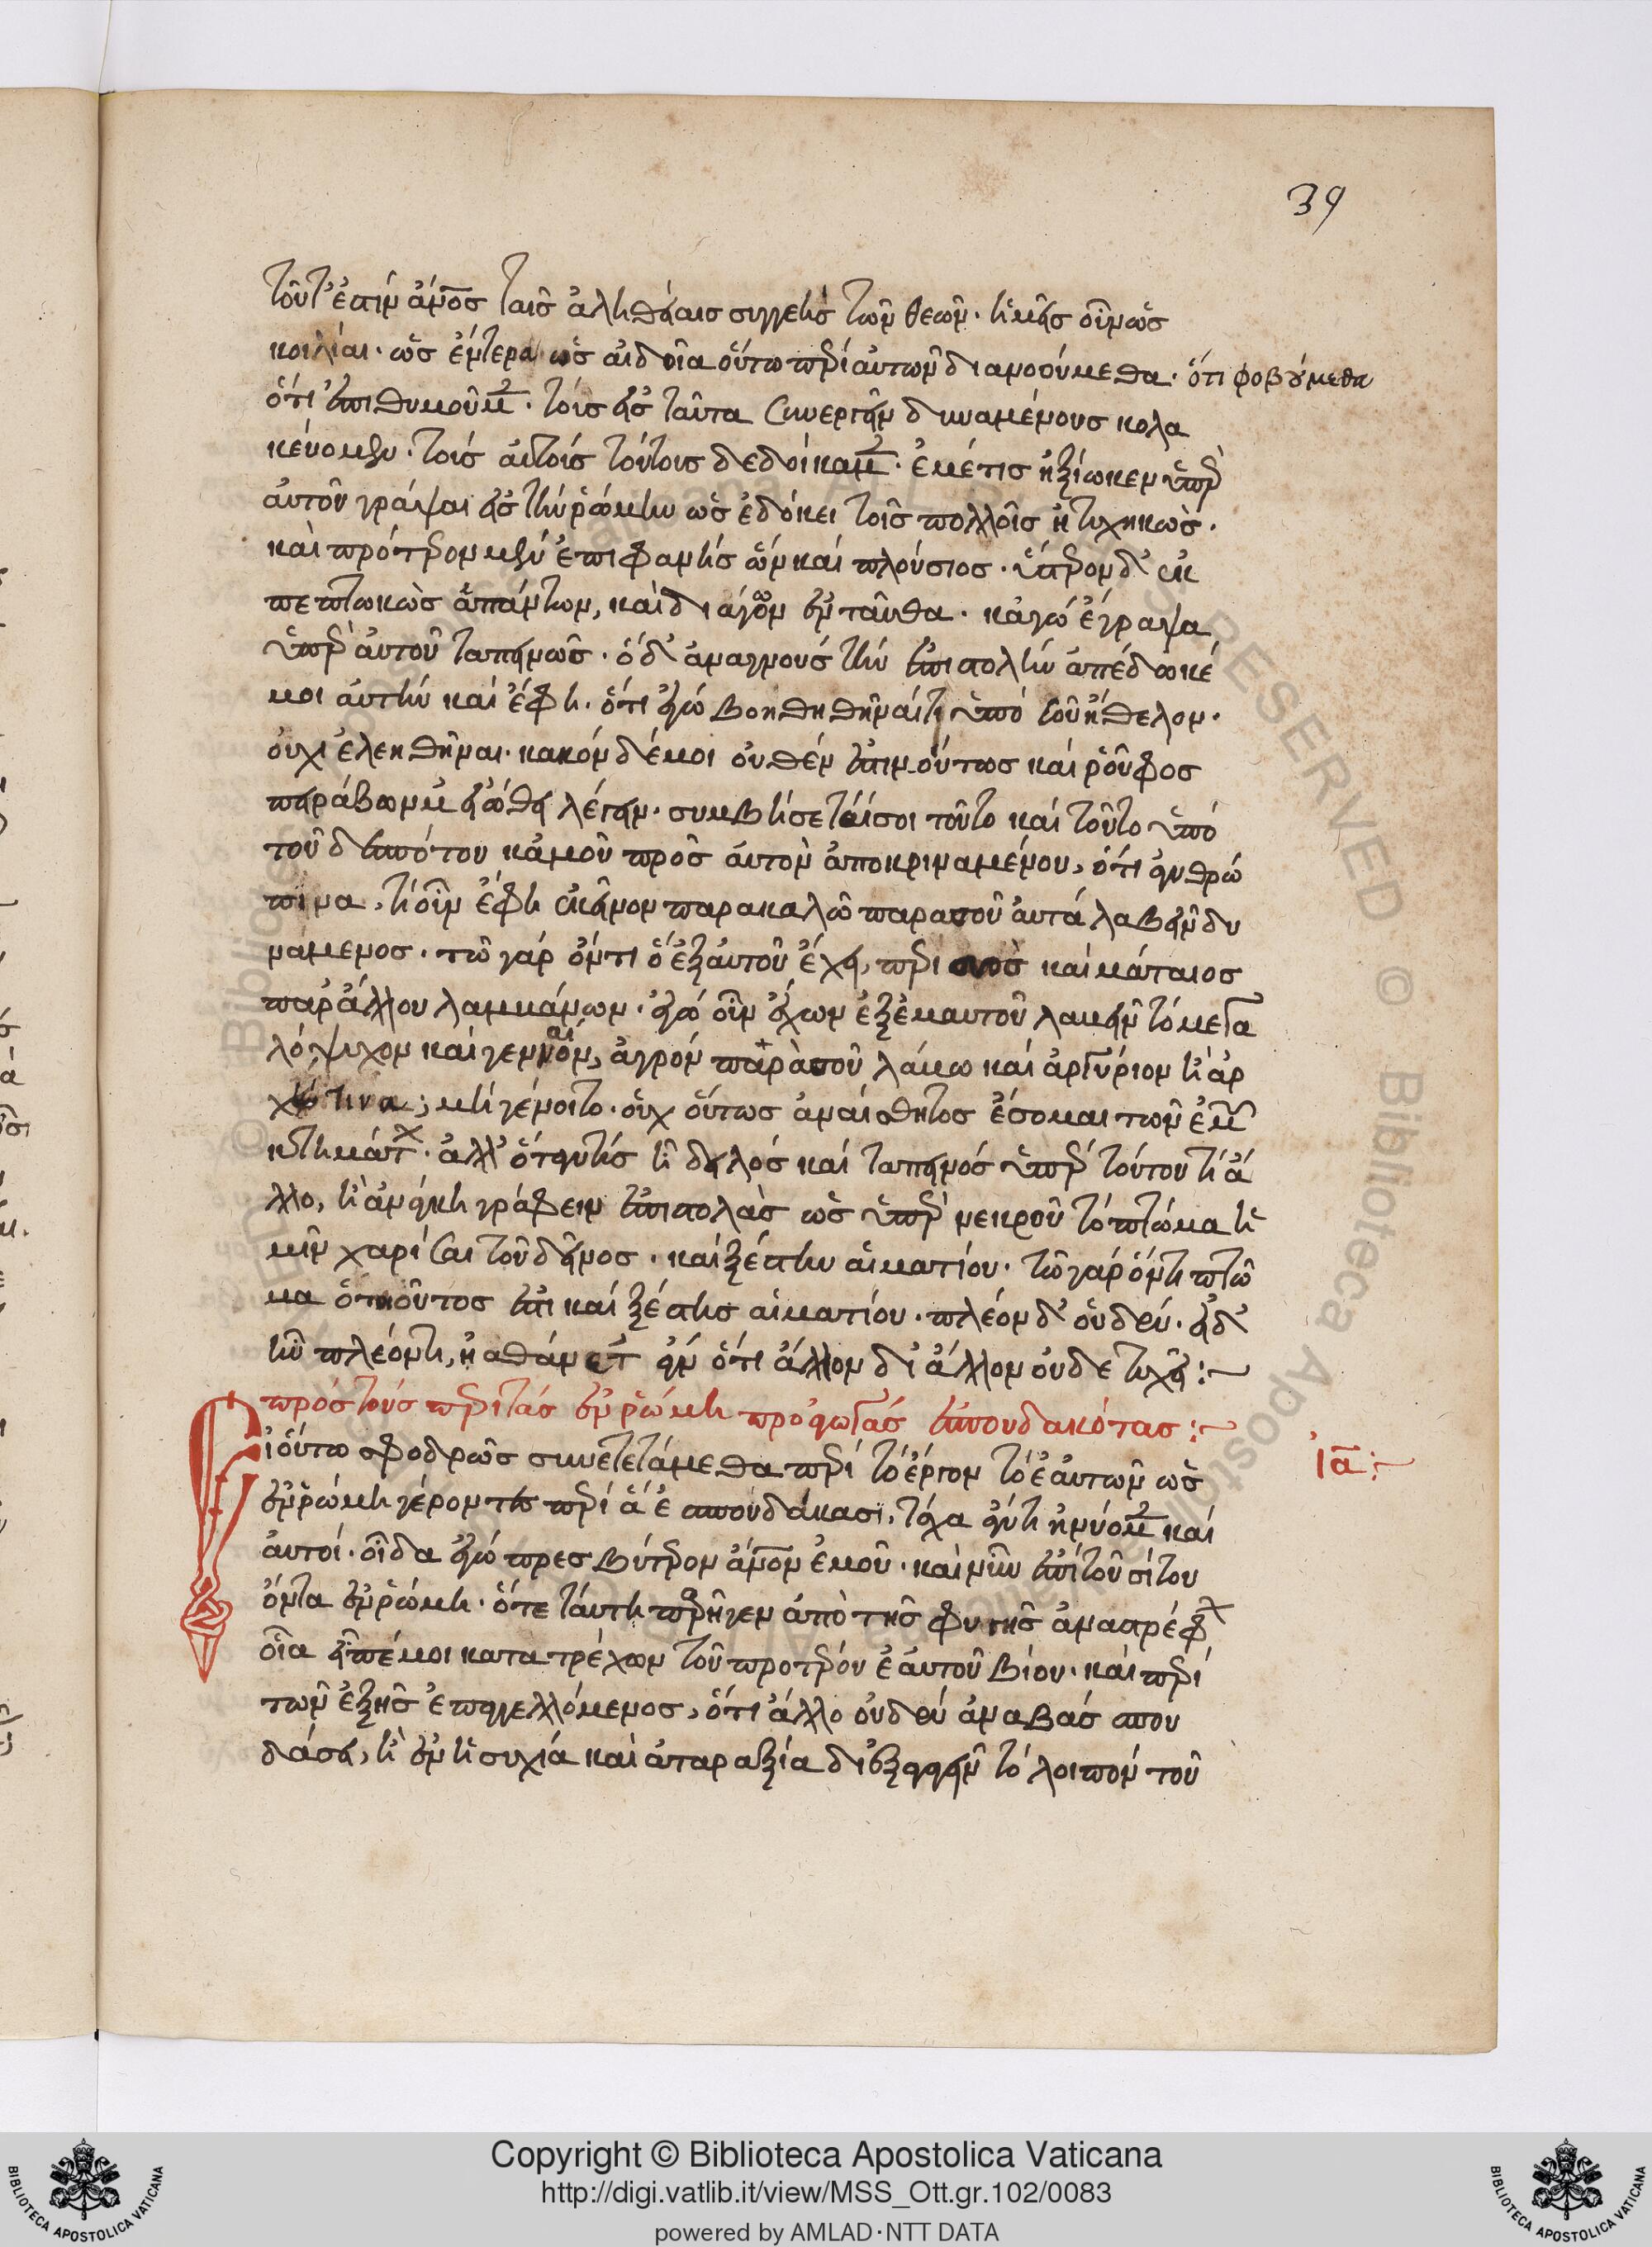 39
τοῦτ' ἔστιν ἄν̅ο̅σ ταῖς ἀληθείαις συγγενὴς τῶν θεῶν. ἡμεῖς οὖν ὡς
κοιλίαι. ὡς ἔντερα ὡς αἰδοῖα οὕτω περὶ αὐτῶν διανοούμεθα. ὅτι φοβούμεθα
ὅτι ἐπιθυμοῦμεν. τοὺς εἰς ταῦτα συνεργεῖν δυναμένους κολα
κεύομεν. τοὺς αὐτοὺς τούτους δεδοίκαμεν. ἐμέ τις ἠξίωκεν ὑπὲρ
αὐτοῦ γράψαι εἰς τὴν ῥώμην ὡς ἐδόκει τοῖς πολλοῖς ἠτυχηκὼς.
καὶ πρότερον μὲν ἐπιφανὴς ὢν καὶ πλούσιος. ὕστερον δ' ἐκ
πεπτωκὼς ἁπάντων, καὶ διάγων ἐνταῦθα. κἀγὼ ἔγραψα
ὑπὲρ αὐτοῦ ταπεινῶς. ὁ δ' ἀναγνοὺς τὴν ἐπιστολὴν ἀπέδωκέ
μοι αὐτὴν καὶ ἔφη. ὅτι ἐγὼ βοηθηθῆναί τι ὑπὸ σοῦ ἤθελον.
οὐχὶ ἐλεηθῆναι. κακὸν δέ μοι οὐθέν ἐστιν. οὕτως καὶ ῥοῦφος
πειράζων με εἰώθει λέγειν. συμβήσεταί σοι τοῦτο καὶ τοῦτο ὑπὸ
τοῦ δεσπότου κἀμοῦ πρὸς αὐτὸν ἀποκριναμένου, ὅτι ἀνθρώ
πινα, τί οὖν ἔφη ἐκεῖνον παρακαλῶ παρὰ σοῦ αὐτὰ λαβεῖν δυ
νάμενος. τῷ γὰρ ὄντι ὃ ἐξ αὑτοῦ ἔχει, περισσὸς καὶ μάταιος
παρ' ἄλλου λαμβάνων. ἐγὼ οὖν ἔχων ἐξ ἐμαυτοῦ λαβεῖν τὸ μεγα
λόψυχον καὶ γενναῖον, ἀγρὸν παρὰ σοῦ λάβω καὶ ἀργύριον ἢ ἀρ
χήν τινα; μὴ γένοιτο. οὐχ οὕτως ἀναίσθητος ἔσομαι τῶν ἐμῶν
κτημάτων. ἀλλ' ὅταν τις ᾖ δειλὸς καὶ ταπεινὸς ὑπὲρ τούτου τί ἄ
λλο, ἢ ἀνάγκη γράφειν ἐπιστολὰς ὡς ὑπὲρ νεκροῦ τὸ πτῶμα ἡ
μῖν χάρισαι τοῦ δεῖνος. καὶ ξέστην αἱματίου. τῷ γὰρ ὄντι πτῶ
μα ὁ τοιοῦτος ἐστι καὶ ξέστης αἱματίου. πλέον δ' οὐδέν. εἰ δ'
ἦν πλέον τι, ᾐσθάνετ' ἂν ὅτι ἄλλον δι' ἄλλον οὐ δυστυχεῖ:~
πρὸς τοὺς περὶ τὰς ἐν ῥώμῃ προαγωγὰς ἐσπουδακότας:~
Εἰ οὕτω σφοδρῶς συνετετάμεθα περὶ τὸ ἔργον τὸ ἑαυτῶν ὡς
ἐν ῥώμῃ γέροντες περὶ ἃ ἐσπουδάκασι, τάχα ἄν τι ἠνύομεν καὶ
αὐτοί. οἶδα ἐγὼ πρεσβύτερον ἄν̅ο̅ν ἐμοῦ. καὶ νῦν ἐπὶ τοῦ σίτου
ὄντα ἐν ῥώμῃ. ὅτε ταύτῃ παρῆγεν ἀπὸ τῆς φυγῆς ἀναστρέφων
οἷα εἶπέ μοι κατατρέχων τοῦ προτέρου ἑαυτοῦ βίου. καὶ περὶ
τῶν ἑξῆς ἐπαγγελλόμενος, ὅτι ἄλλο οὐδὲν ἀναβὰς σπου
δάσει, ἢ ἐν ἡσυχίᾳ καὶ ἀταραξίᾳ διεξαγαγεῖν τὸ λοιπὸν τοῦ
ια:~
Copyright © Biblioteca Apostolica Vaticana
http://digi.vatlib.it/view/MSS_Ott.gr.102/0083
powered by AMLAD·NTT DATA
BIBLIOTECA APOSTOLICA VATICANA
BIBLIOTECA APOSTOLICA VATICANA